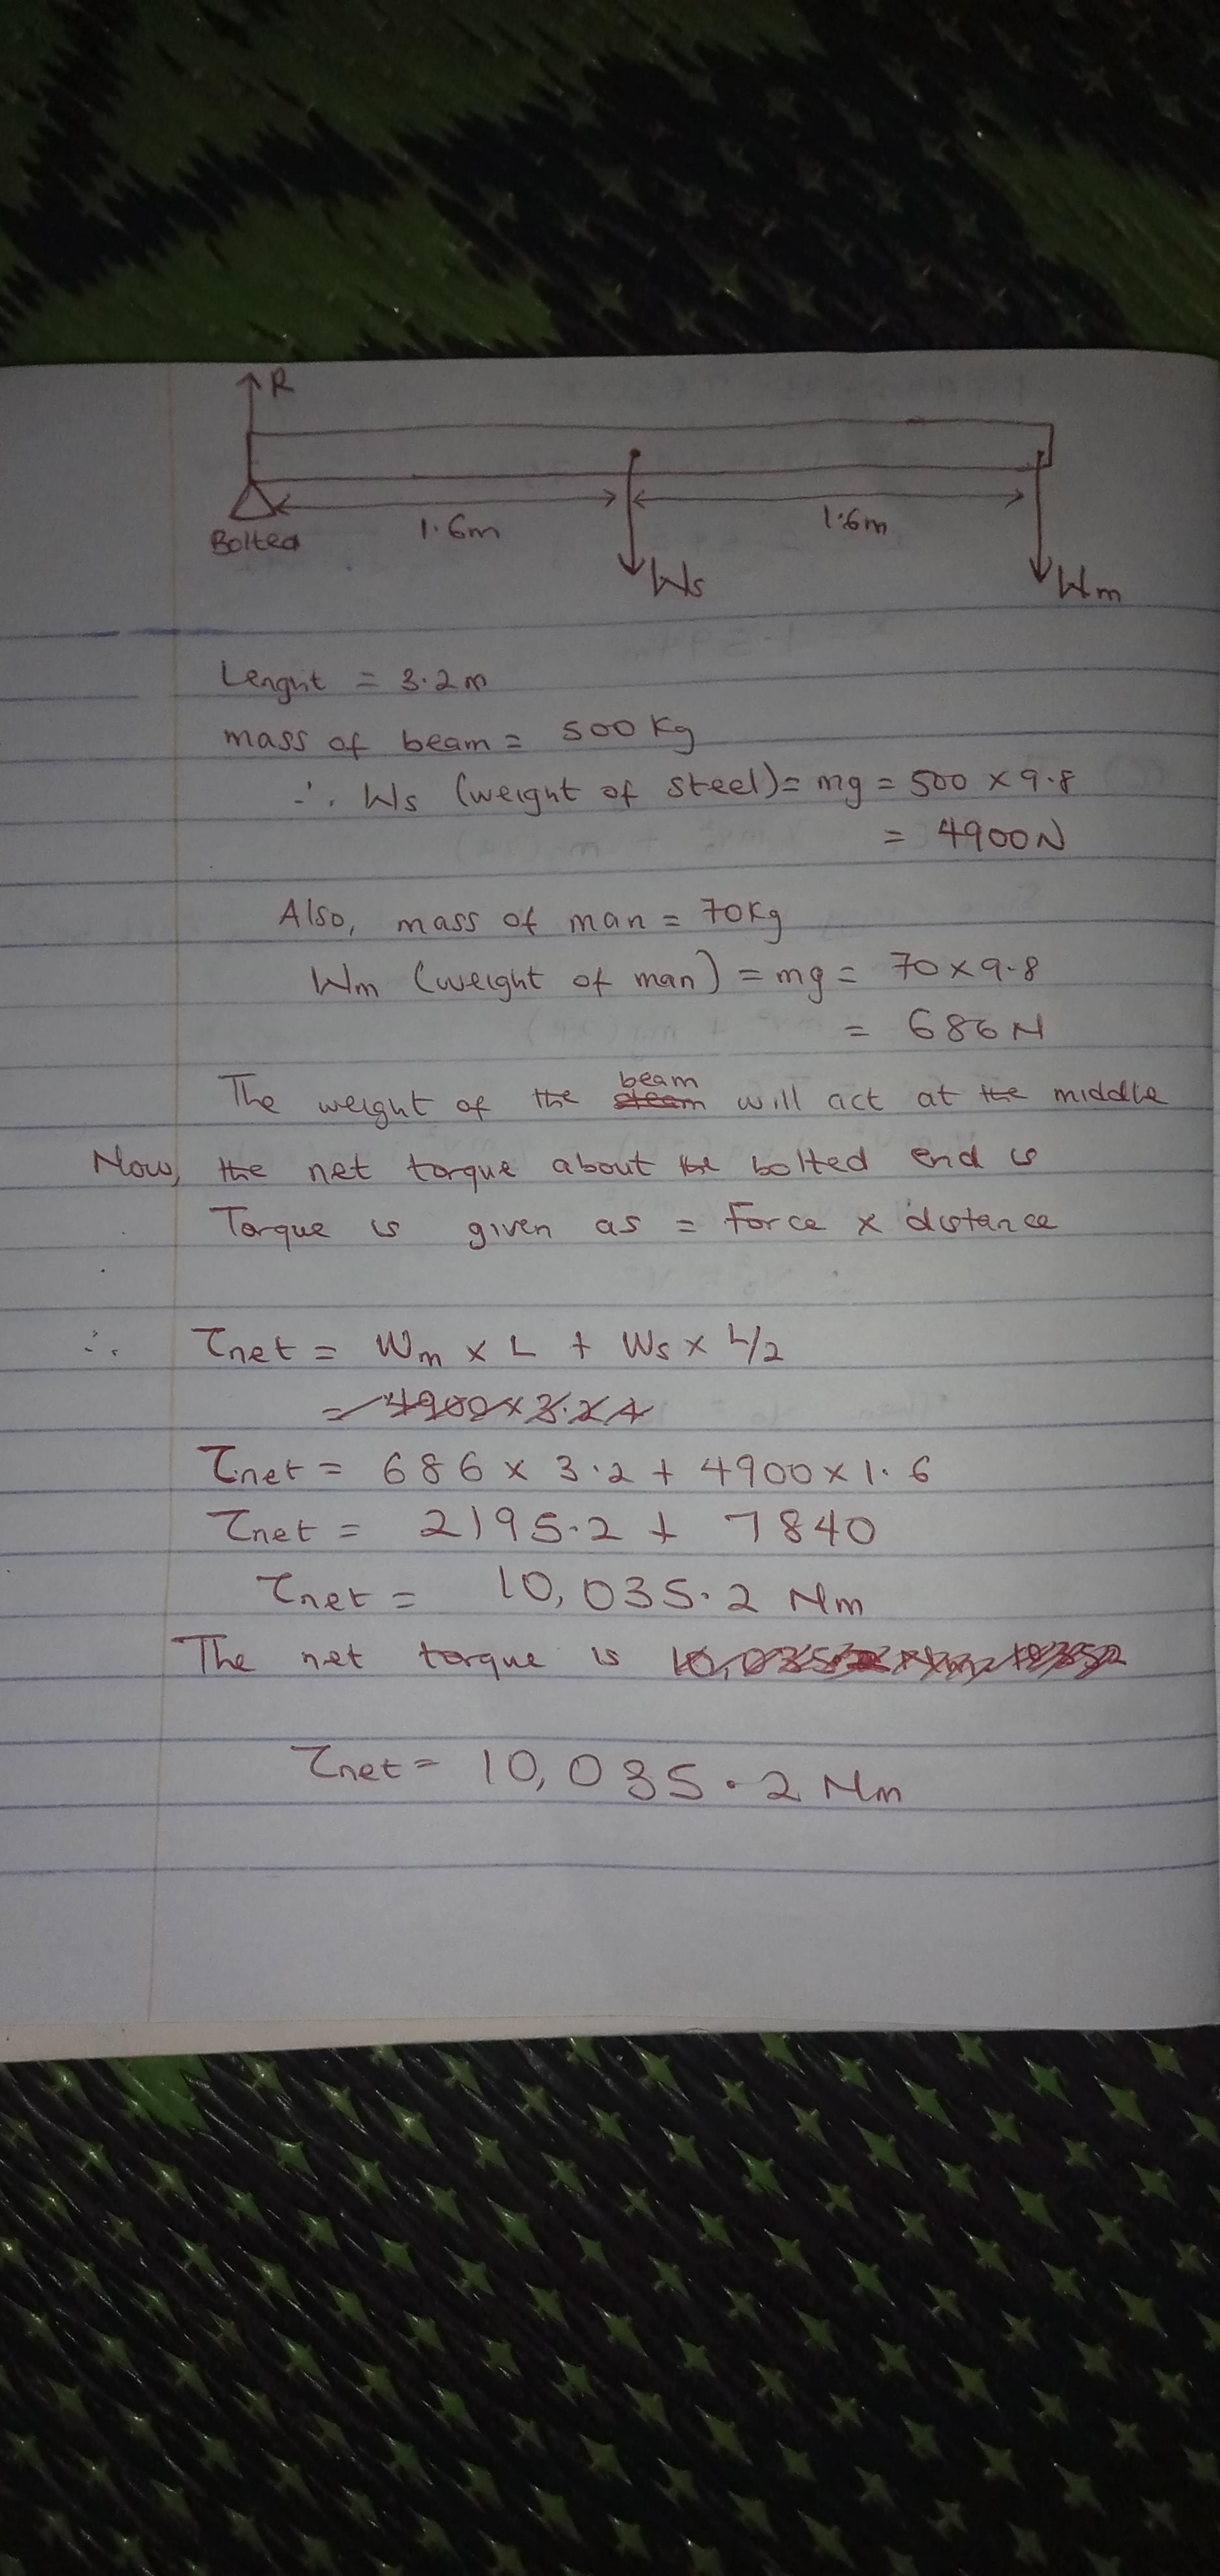 R
Bolted
1.6m
1.6m
Ws
Wm
Lenght = 3.2m
mass of beam = 500 Kg
∴ Ws (weight of steel) = mg = 500 × 9.8
= 4900N
Also, mass of man = 70Kg
Wm (weight of man) = mg = 70 × 9.8
= 686N
The weight of the beam will act at the middle
Now, the net torque about the bolted end is
Torque is given as = Force × distance
∴ τnet = Wm × L + Ws × L/2
τnet = 686 × 3.2 + 4900 × 1.6
τnet = 2195.2 + 7840
τnet = 10,035.2 Nm
The net torque is
τnet = 10,035.2 Nm